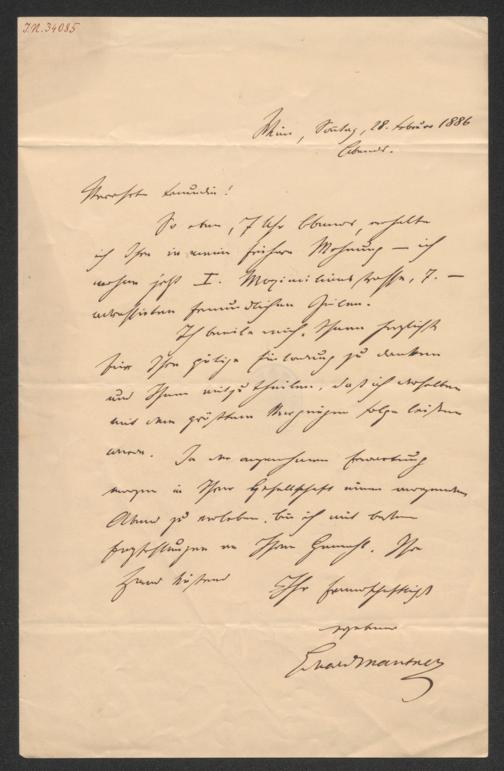 I.N. 34085
Wien, Sonntag, 28. Februar 1886
Abends.
Verehrte Freundin!
So eben, 7 Uhr Abends, erhalte
ich Ihre in meine frühere Wohnung – ich
wohne jetzt I. Maximilianstrasse, 7. –
adressirten freundlichen Zeilen.
Ich beeile mich, Ihnen herzlichst
für Ihre gütige Einladung zu danken
und Ihnen mitzutheilen, daß ich derselben
mit dem größten Vergnügen Folge leisten
werde. In der angenehmen Erwartung
morgen in Ihrer Gesellschaft einen anregenden
Abend zu verleben, bin ich mit besten
Empfehlungen an Ihren Gemahl, Ihre
Hand küssend Ihr freundschaftlichst
ergebener